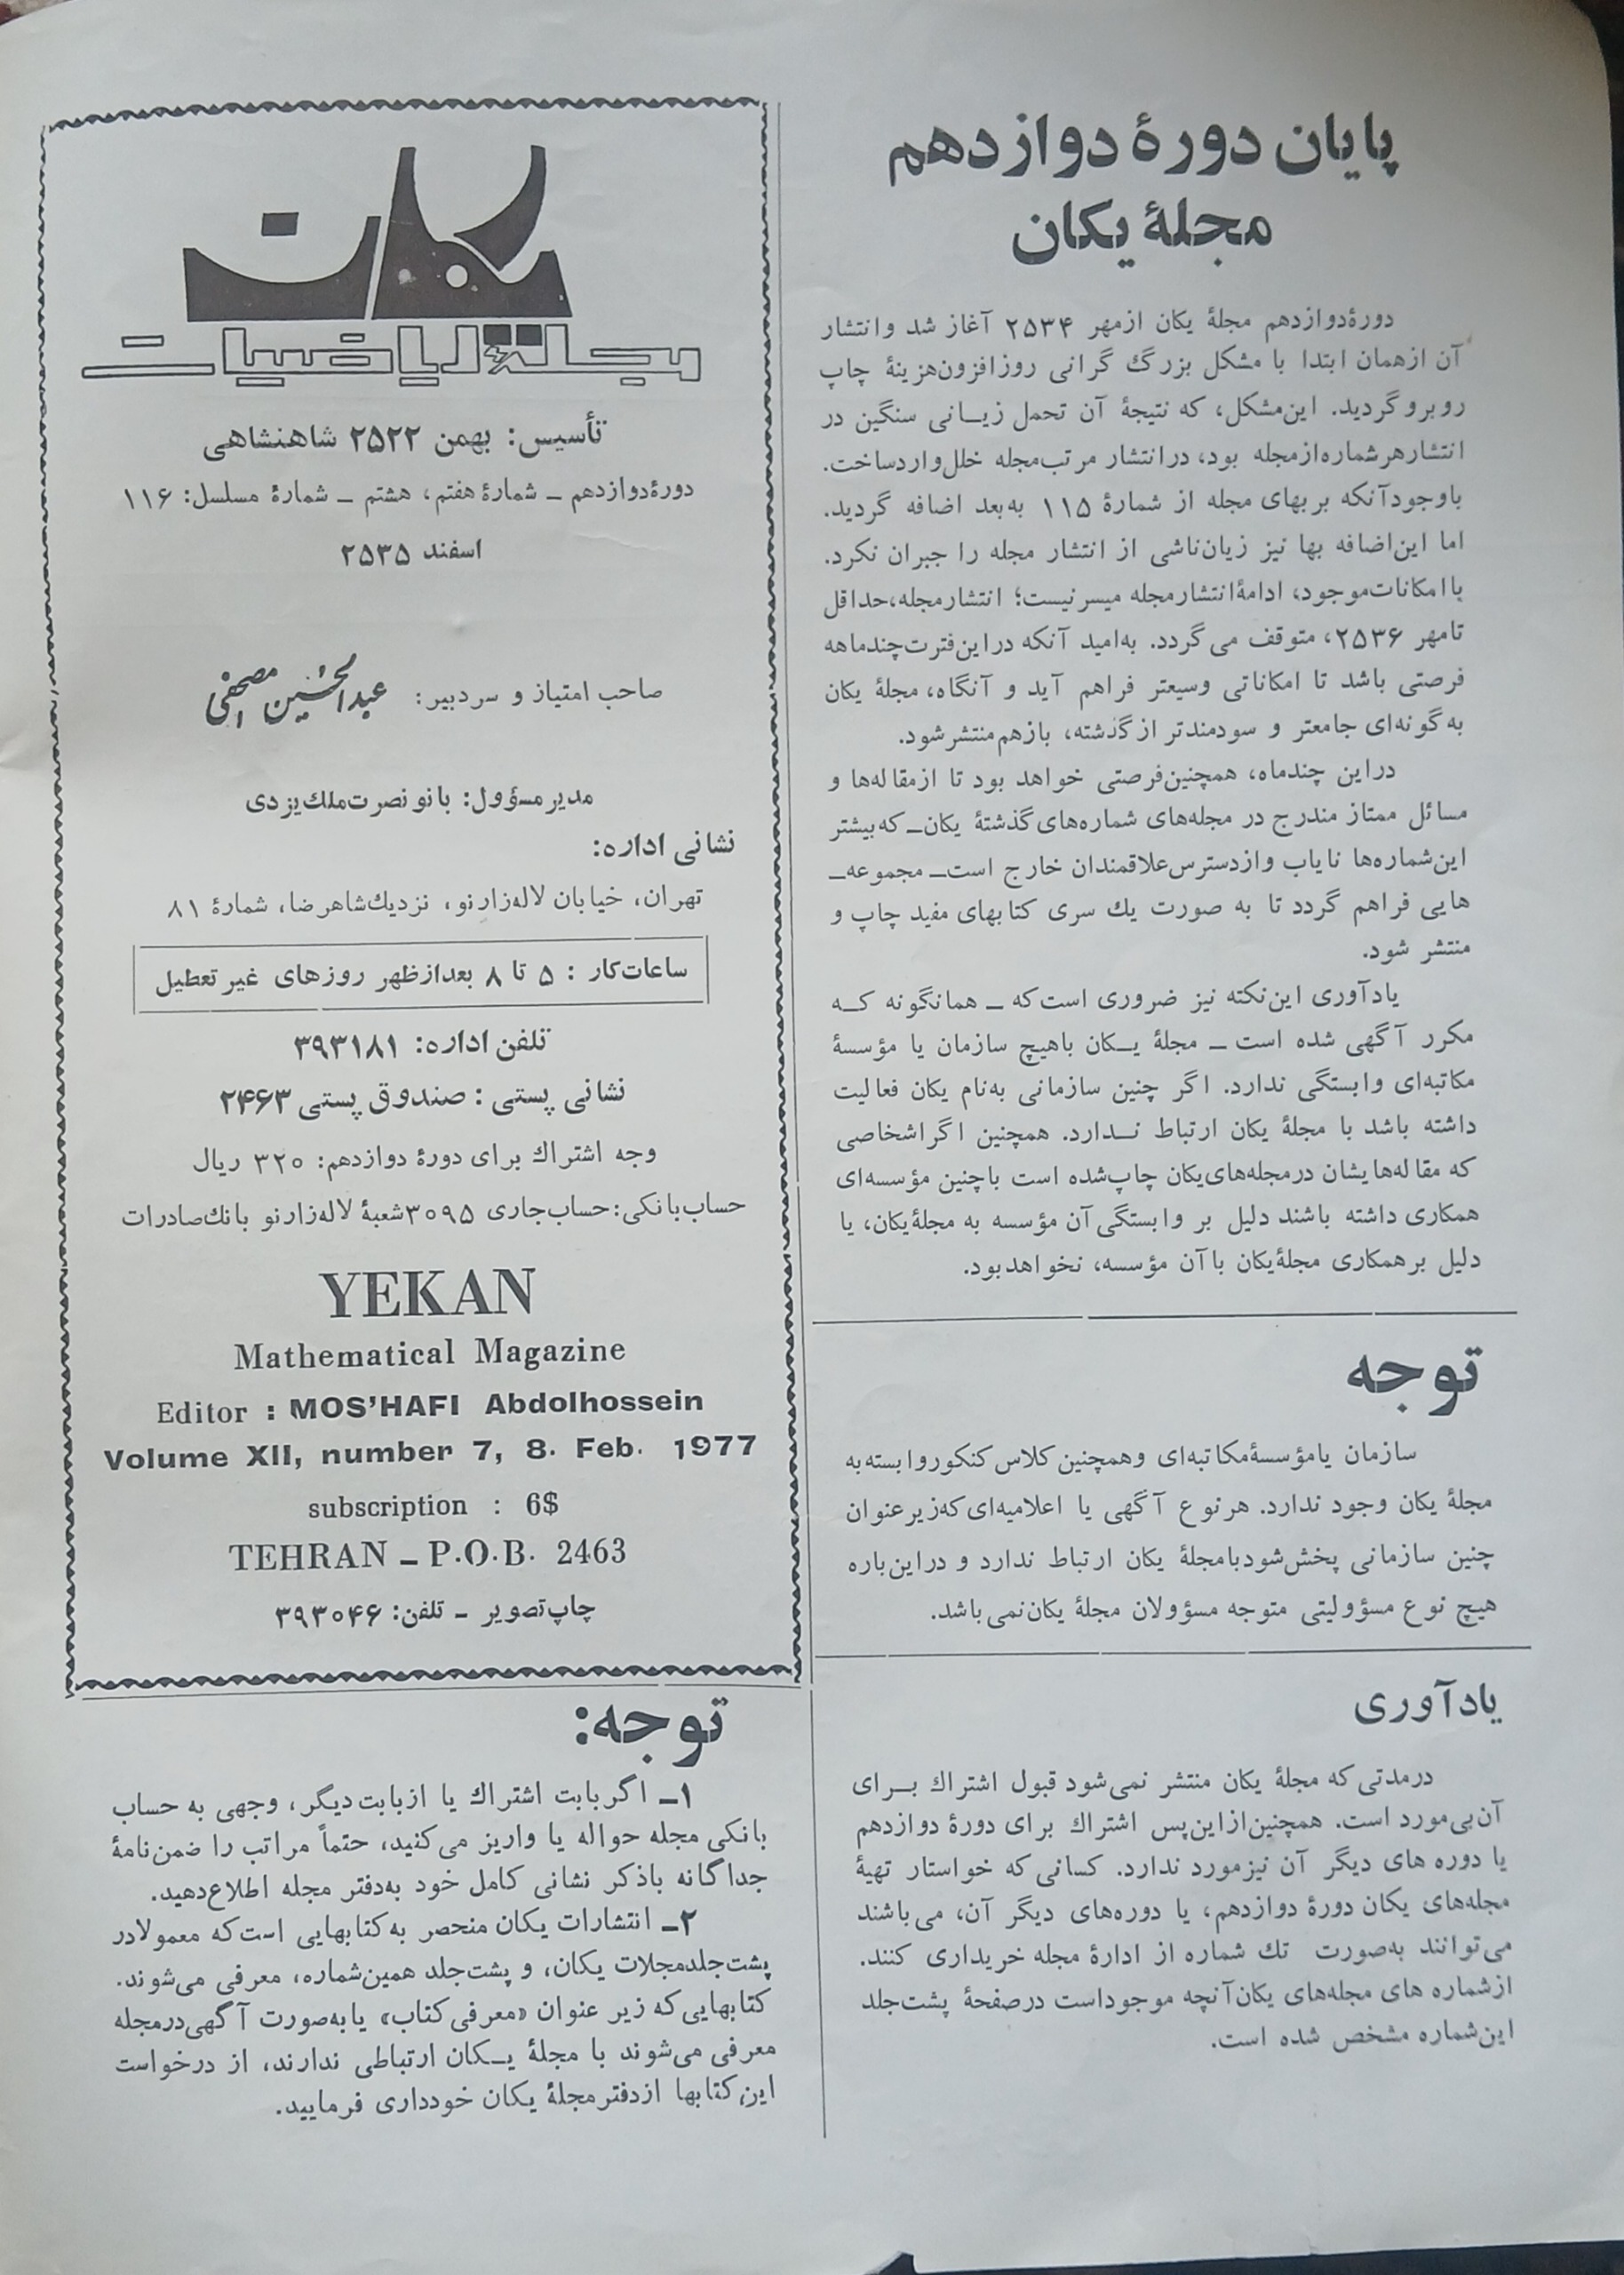 پایان دورهٔ دوازدهم
مجلهٔ یکان
دورهٔ دوازدهم مجلهٔ یکان از مهر ۲۵۳۴ آغاز شد و انتشار
آن از همان ابتدا با مشکل بزرگ گرانی روزافزون هزینهٔ چاپ
روبرو گردید. این مشکل، که نتیجهٔ آن تحمل زیانی سنگین در
انتشار هر شماره از مجله بود، در انتشار مرتب مجله خلل وارد ساخت.
با وجود آنکه بر بهای مجله از شمارهٔ ۱۱۵ به بعد اضافه گردید.
اما این اضافه بها نیز زیان ناشی از انتشار مجله را جبران نکرد.
با امکانات موجود، ادامهٔ انتشار مجله میسر نیست؛ انتشار مجله، حداقل
تا مهر ۲۵۳۶، متوقف می گردد. به امید آنکه در این فترت چند ماهه
فرصتی باشد تا امکاناتی وسیعتر فراهم آید و آنگاه، مجلهٔ یکان
به گونه‌ای جامعتر و سودمندتر از گذشته، باز هم منتشر شود.
در این چند ماه، همچنین فرصتی خواهد بود تا از مقاله‌ها و
مسائل ممتاز مندرج در مجله‌های شماره‌های گذشتهٔ یکان ـ که بیشتر
این شماره‌ها نایاب و از دسترس علاقمندان خارج است ـ مجموعه ـ
هایی فراهم گردد تا به صورت یك سری کتابهای مفید چاپ و
منتشر شود.
یادآوری این نکته نیز ضروری است که ـ همانگونه که
مکرر آگهی شده است ـ مجلهٔ یکان با هیچ سازمان یا مؤسسهٔ
مکاتبه‌ای وابستگی ندارد. اگر چنین سازمانی به نام یکان فعالیت
داشته باشد با مجلهٔ یکان ارتباط ندارد. همچنین اگر اشخاصی
که مقاله‌هایشان در مجله‌های یکان چاپ شده است با چنین مؤسسه‌ای
همکاری داشته باشند دلیل بر وابستگی آن مؤسسه به مجلهٔ یکان، یا
دلیل بر همکاری مجلهٔ یکان با آن مؤسسه، نخواهد بود.
توجه
سازمان یا مؤسسهٔ مکاتبه‌ای و همچنین کلاس کنکور وابسته به
مجلهٔ یکان وجود ندارد. هر نوع آگهی یا اعلامیه‌ای که زیر عنوان
چنین سازمانی پخش شود با مجلهٔ یکان ارتباط ندارد و در این باره
هیچ نوع مسؤولیتی متوجه مسؤولان مجلهٔ یکان نمی باشد.
یادآوری
در مدتی که مجلهٔ یکان منتشر نمی شود قبول اشتراك برای
آن بی مورد است. همچنین از این پس اشتراك برای دورهٔ دوازدهم
یا دوره های دیگر آن نیز مورد ندارد. کسانی که خواستار تهیهٔ
مجله‌های یکان دورهٔ دوازدهم، یا دوره‌های دیگر آن، می باشند
می توانند به صورت تك شماره از ادارهٔ مجله خریداری کنند.
از شماره های مجله‌های یکان آنچه موجود است در صفحهٔ پشت جلد
این شماره مشخص شده است.
یکان
مجلهٔ ریاضیات
تأسیس: بهمن ۲۵۲۲ شاهنشاهی
دورهٔ دوازدهم ـ شمارهٔ هفتم، هشتم ـ شمارهٔ مسلسل: ۱۱۶
اسفند ۲۵۳۵
صاحب امتیاز و سردبیر: عبدالحسین مصحفی
مدیر مسؤول: بانو نصرت ملك یزدی
نشانی اداره:
تهران، خیابان لاله‌زار نو، نزدیك شاهرضا، شمارهٔ ۸۱
ساعات کار : ۵ تا ۸ بعد از ظهر روزهای غیر تعطیل
تلفن اداره: ۳۹۳۱۸۱
نشانی پستی : صندوق پستی ۲۴۶۳
وجه اشتراك برای دورهٔ دوازدهم: ۳۲۰ ریال
حساب بانکی: حساب جاری ۳۰۹۵ شعبهٔ لاله‌زار نو بانك صادرات
YEKAN
Mathematical Magazine
Editor : MOS'HAFI Abdolhossein
Volume XII, number 7, 8. Feb. 1977
subscription : 6$
TEHRAN – P.O.B. 2463
چاپ تصویر ـ تلفن: ۳۹۳۰۴۶
توجه:
۱ـ اگر بابت اشتراك یا از بابت دیگر، وجهی به حساب
بانکی مجله حواله یا واریز می کنید، حتماً مراتب را ضمن نامهٔ
جداگانه با ذکر نشانی کامل خود به دفتر مجله اطلاع دهید.
۲ـ انتشارات یکان منحصر به کتابهایی است که معمولا در
پشت جلد مجلات یکان، و پشت جلد همین شماره، معرفی می شوند.
کتابهایی که زیر عنوان «معرفی کتاب» یا به صورت آگهی در مجله
معرفی می شوند با مجلهٔ یکان ارتباطی ندارند، از درخواست
این کتابها از دفتر مجلهٔ یکان خودداری فرمایید.